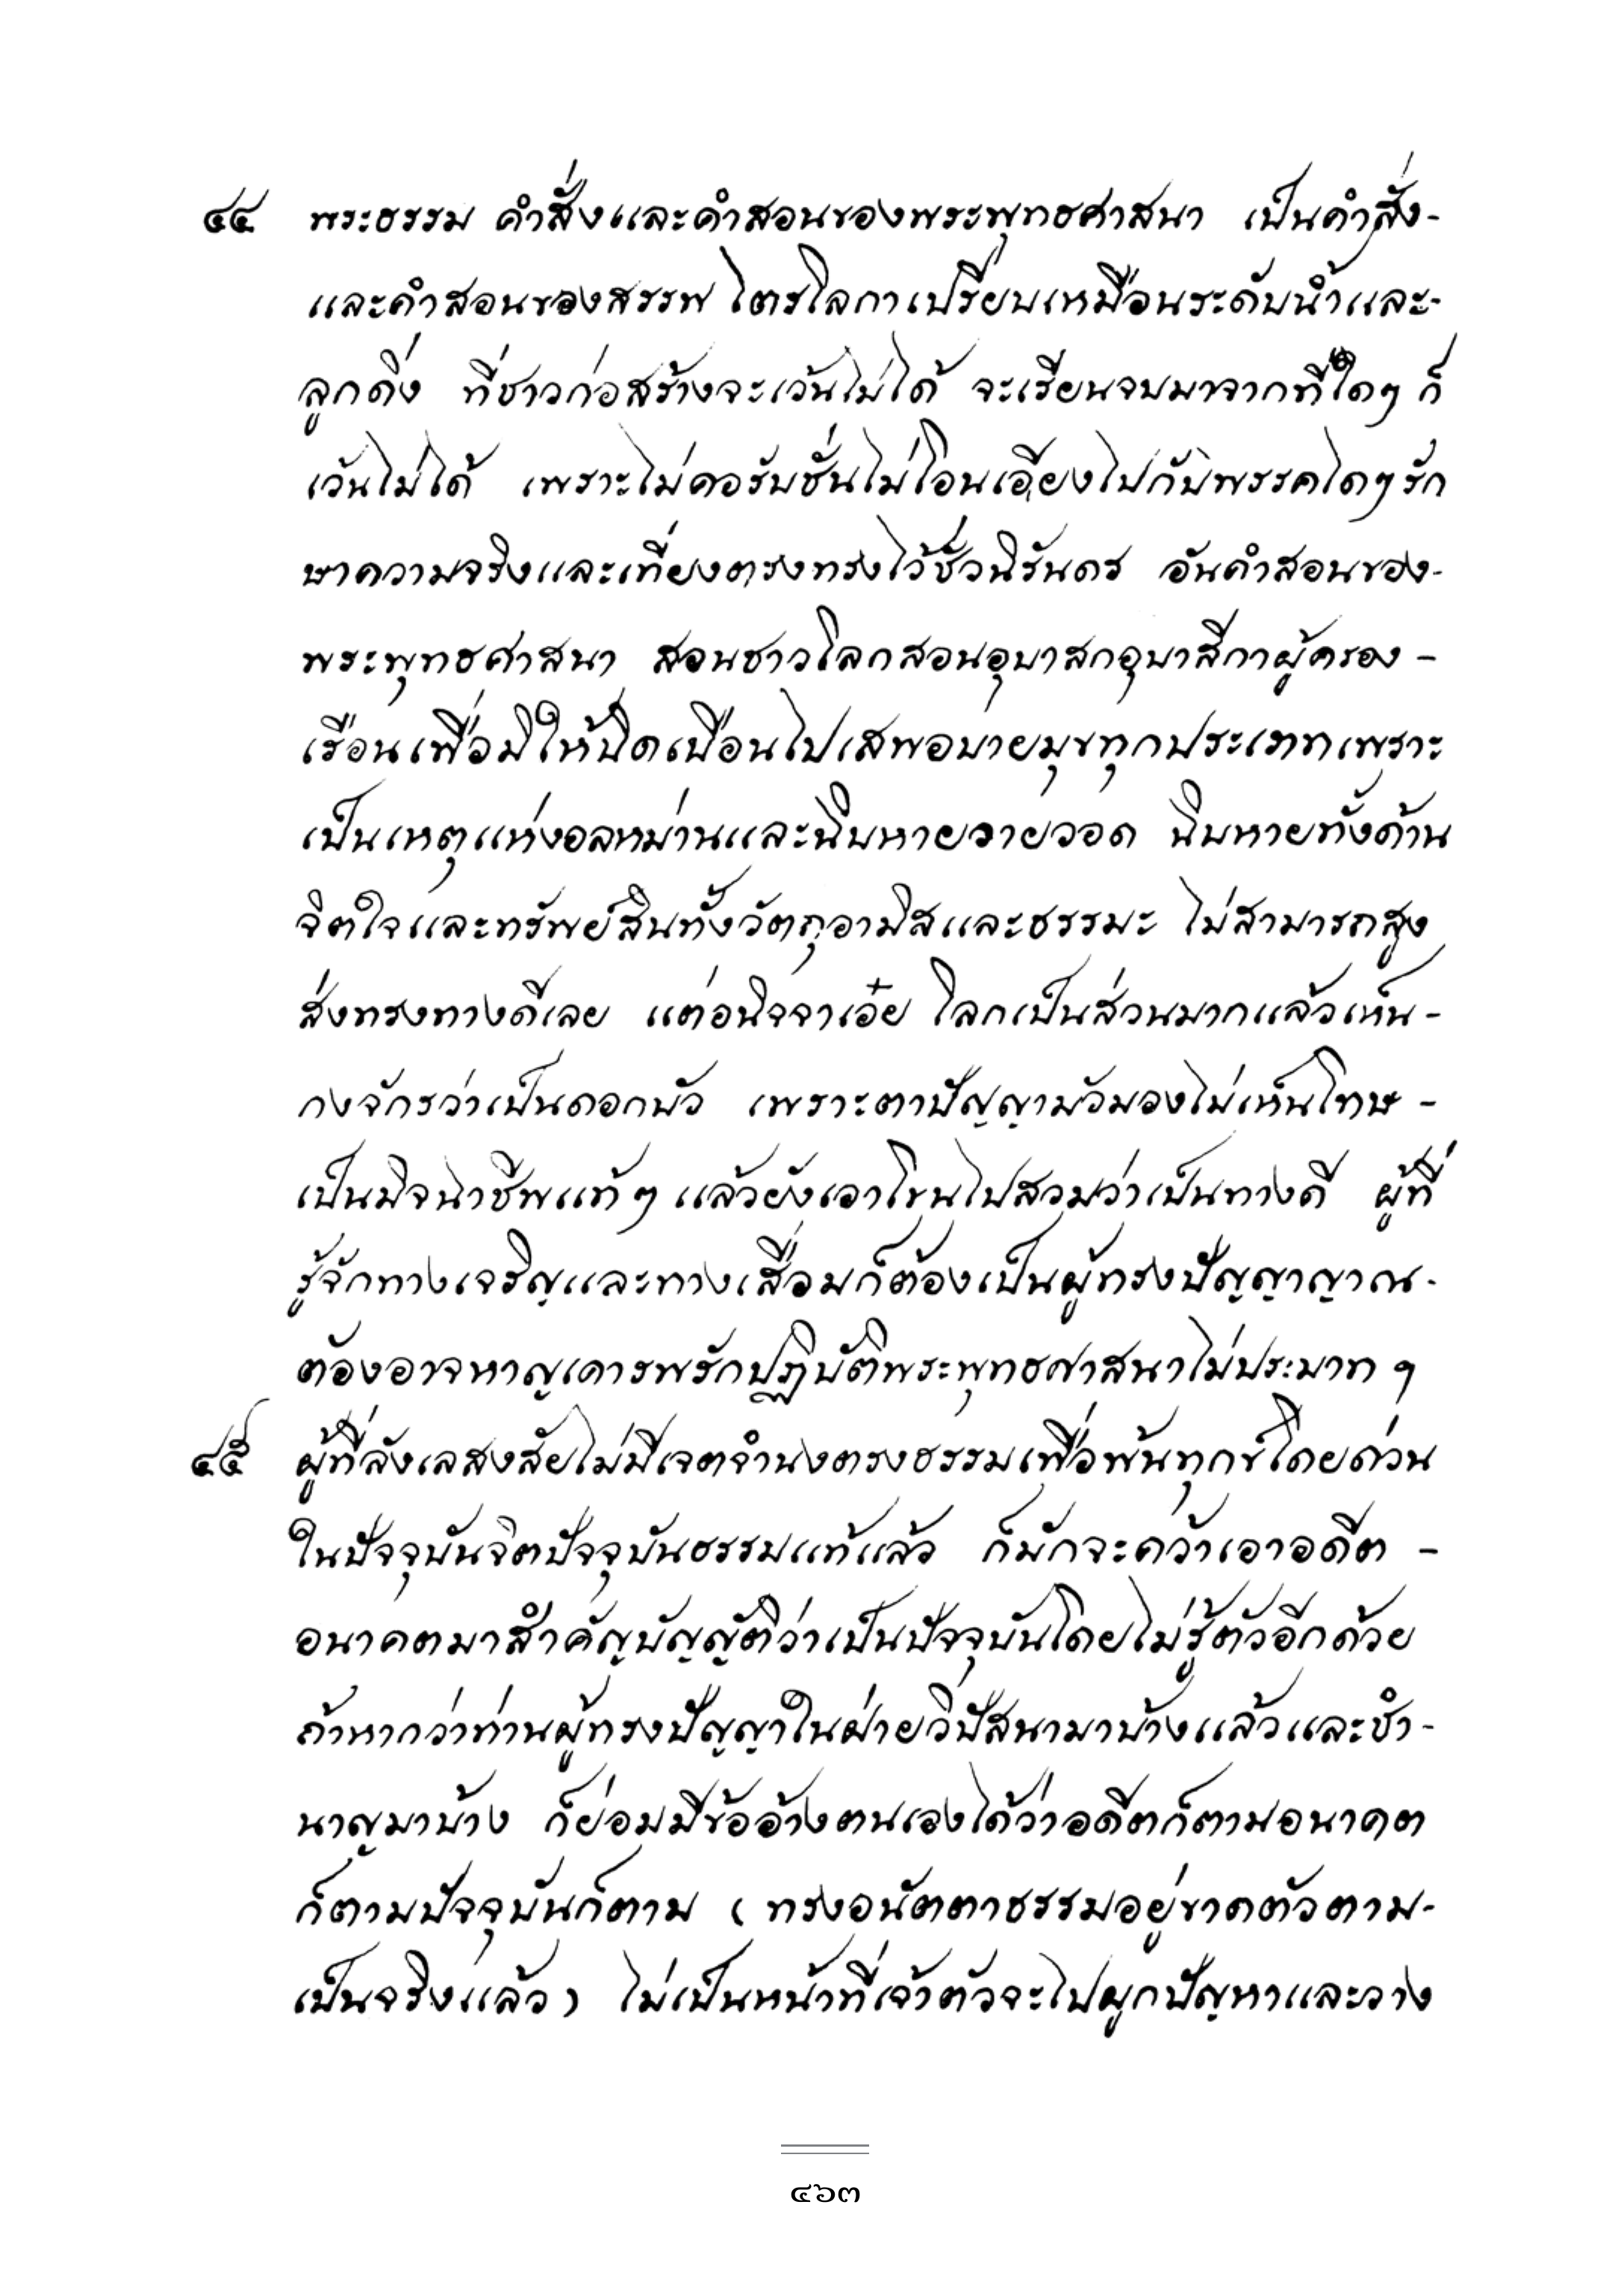 ๔๔ พระธรรม คำสั่งและคำสอนของพระพุทธศาสนา เป็นคำสั่ง-
และคำสอนของสรรพ ไตรโลกาเปรียบเหมือนระดับน้ำและ-
ลูกดิ่ง ที่ชาวก่อสร้างจะเว้นไม่ได้ จะเรียนจบมาจากที่ใดๆ ก็
เว้นไม่ได้ เพราะไม่คอรับชั่นไม่โอนเอียงไปกับพรรคใดๆ รัก
ษาความจริงและเที่ยงตรงทรงไว้ชั่วนิรันดร อันคำสอนของ-
พระพุทธศาสนา สอนชาวโลกสอนอุบาสกอุบาสิกาผู้ครอง-
เรือนเพื่อมิให้บิดเบือนไปเสพอบายมุขทุกประเภทเพราะ
เป็นเหตุแห่งอลหม่านและฉิบหายวายวอด ฉิบหายทั้งด้าน
จิตใจและทรัพย์สินทั้งวัตถุอามิสและธรรมะ ไม่สามารถสูง
ส่งทรงทางดีเลย แต่อนิจจาเอ๋ย โลกเป็นส่วนมากแล้วเห็น-
กงจักรว่าเป็นดอกบัว เพราะตาปัญญามัวมองไม่เห็นโทษ-
เป็นมิจฉาชีพแท้ๆ แล้วยังเอาโซ่ไปสวมว่าเป็นทางดี ผู้ที่
รู้จักทางเจริญและทางเสื่อมก็ต้องเป็นผู้ทรงปัญญาญาณ-
ต้องอาจหาญเคารพรักปฏิบัติพระพุทธศาสนาไม่ประมาท ฯ
๔๕ ผู้ที่ลังเลสงสัยไม่มีเจตจำนงตรงธรรมเพื่อพ้นทุกข์โดยด่วน
ในปัจจุบันจิตปัจจุบันธรรมแท้แล้ว ก็มักจะคว้าเอาอดีต-
อนาคตมาสำคัญบัญญัติว่าเป็นปัจจุบันโดยไม่รู้ตัวอีกด้วย
ถ้าหากว่าท่านผู้ทรงปัญญาในฝ่ายวิปัสนามาบ้างแล้วและชำ-
นาญมาบ้าง ก็ย่อมมีข้ออ้างตนเองได้ว่าอดีตก็ตามอนาคต
ก็ตามปัจจุบันก็ตาม ( ทรงอนัตตาธรรมอยู่ขาดตัวตาม-
เป็นจริงแล้ว) ไม่เป็นหน้าที่เจ้าตัวจะไปผูกปัญหาและวาง
๔๖๓